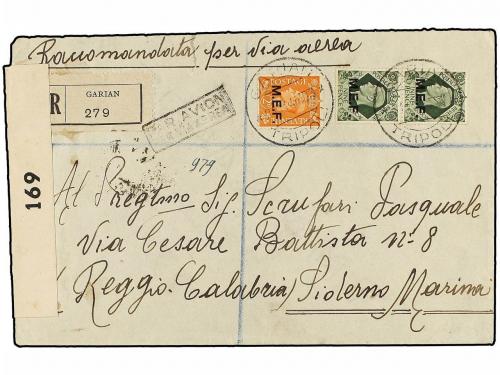 Raccomandata per via aerea
R GARIAN
279
PAR AVION
POSTAGE
M.E.F.
M.E.F.
M.E.F.
TRIPOLI
TRIPOLI
169
979
Al Pregimo Sig. Scrufari Pasquale
Via Cesare Battista nº 8
Reggio-Calabria) Siderno Marina